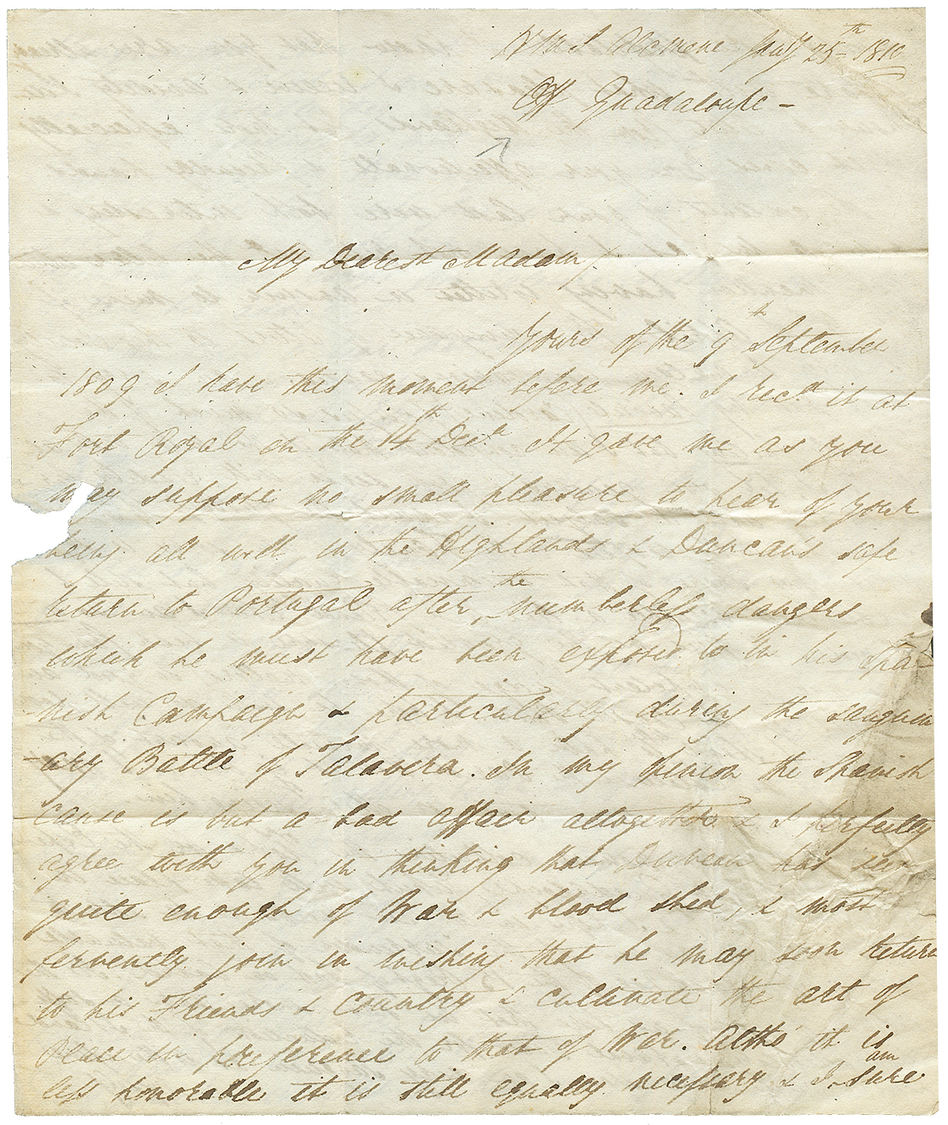 HMS Alcmene Jany 25th 1810
Off Guadaloupe -
My Dearest Madam/
Yours of the 9th September
1809 I have this moment before me. I recd it at
Fort Royal on the 14th Decr. It gave me as you
may suppose no small pleasure to hear of your
being all well in the Highlands & Duncan's safe
return to Portugal after the numberless dangers
which he must have been exposed to in his Spa-
nish Campaign & particularly during the sanguin
-ary Battle of Talavera. In my opinion the Spanish
cause is but a bad affair altogether & I perfectly
agree with you in thinking that Duncan has seen
quite enough of War & blood shed, & most
fervently join in wishing that he may soon return
to his Friends & Country & cultivate the art of
Peace in preference to that of War. Altho it is
less honorable it is still equally necessary & I am sure